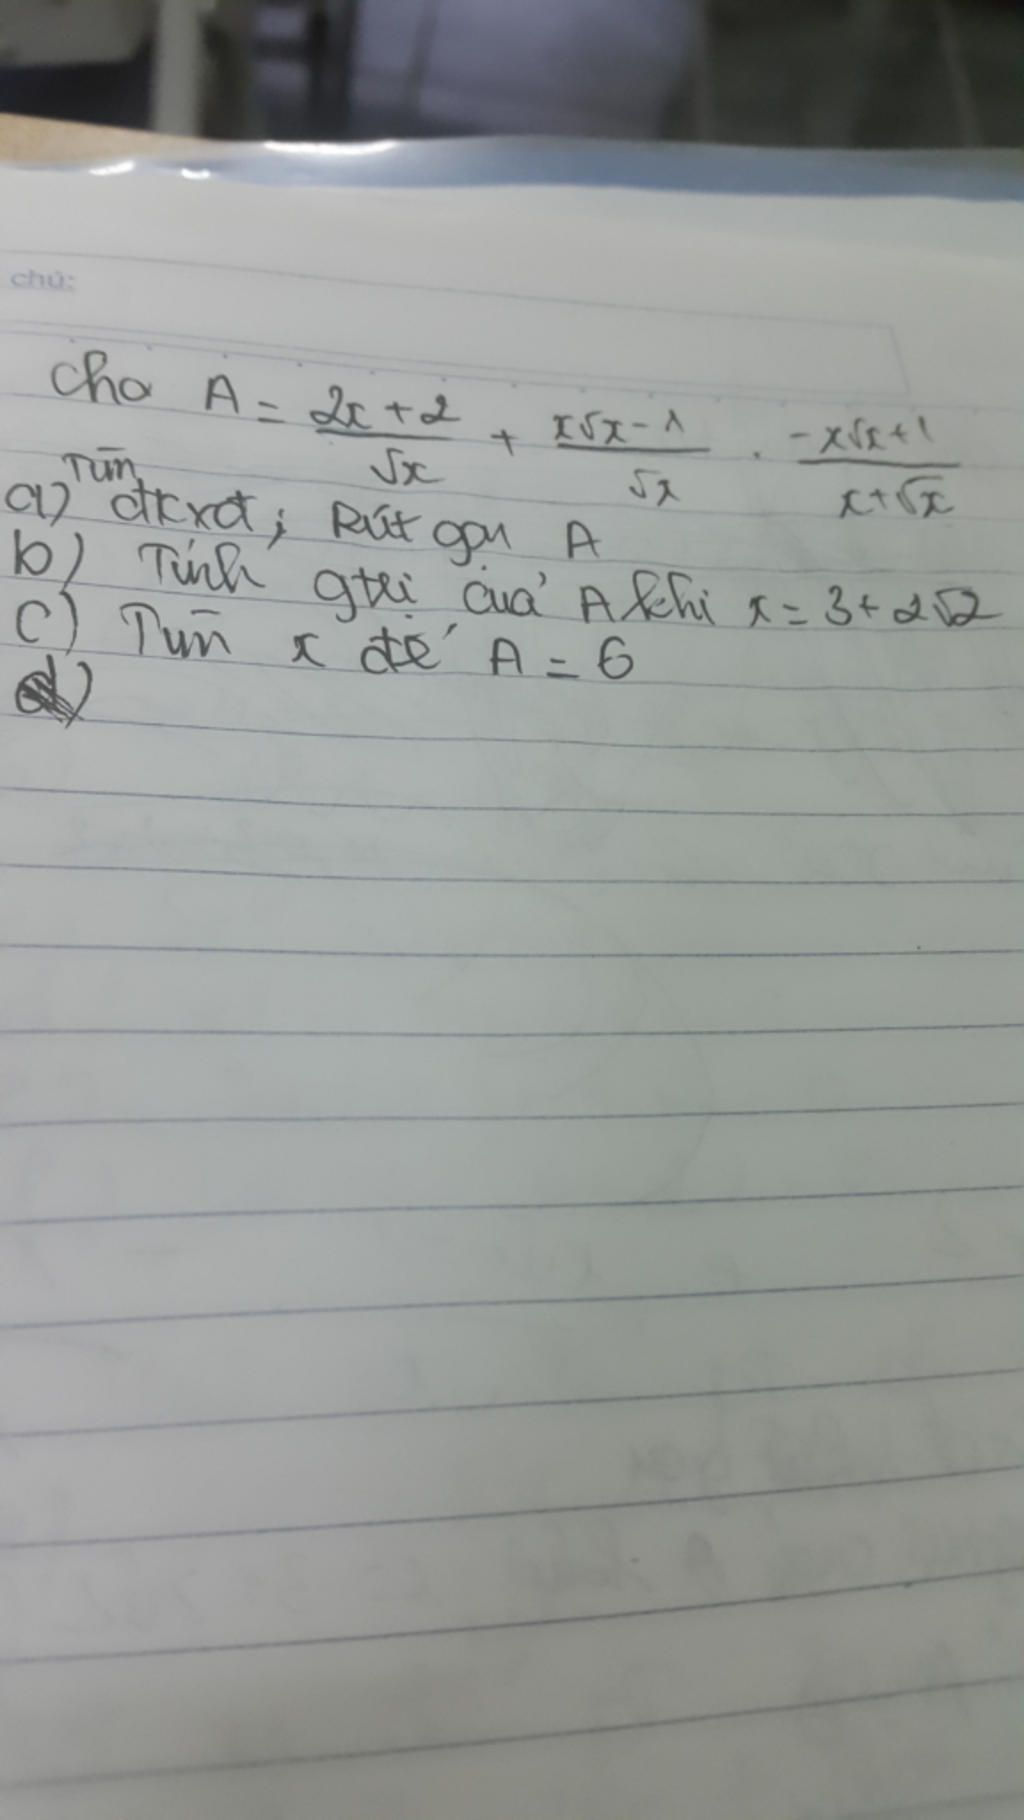 chú:
Cho A = \frac{2x+2}{\sqrt{x}} + \frac{x\sqrt{x}-1}{\sqrt{x}} . \frac{-x\sqrt{x}+1}{x+\sqrt{x}}
a) Tìm đkxđ; Rút gọn A
b) Tính gtrị của A khi x = 3 + 2\sqrt{2}
c) Tìm x để A = 6
d)